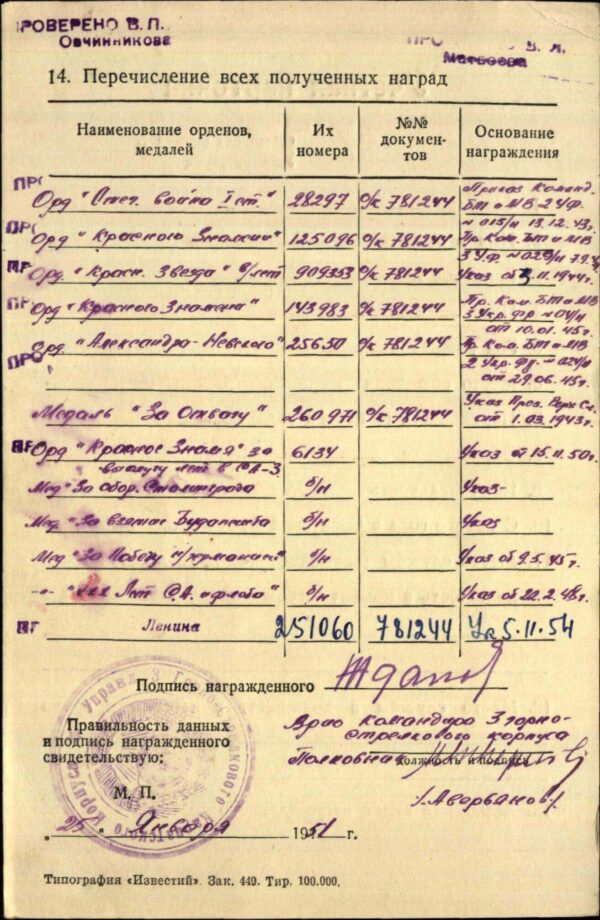 ПРОВЕРЕНО В. П.
Овчинникова
ПРО В. А.
Матвеева
14. Перечисление всех полученных наград
Наименование орденов, медалей
Их номера
№№ документов
Основание награждения
ПРО
Орд "Отеч. война I ст." 28297 о/к 781244 Приказ Команд. БТ и МВ 2 УФ. № 015/н 13.12.43г.
ПРО
Орд "Красного Знамени" 125096 о/к 781244 Пр. Ком. БТ и МВ 3 У.Ф. № 029/н 7.9.44
ПР
Орд. "Красн. Звезда" 909353 о/к 781244 Указ от 3.11.1944г.
ПР
Орд "Красного Знамени" 143983 о/к 781244 Пр. Ком. БТ и МВ 3 Укр. Фр. № 04/н от 10.01.45г.
Орд. "Александра-Невского" 25650 о/к 781244 Пр. Ком. БТ и МВ 2 Укр. Фр. № от 29.06.45г.
ПРО
Медаль "За Отвагу" 260971 о/к 781244 Указ През. Верх. С. от 1.03.1943г.
ПР
Орд "Красное Знамя" за выслугу лет в СА 6134 Указ от 15.11.50г.
Мед "За обор. Сталинграда б/н Указ-
Мед. "За взятие Будапешта б/н Указ
Мед "За Победу н/Германией" б/н Указ от 9.5.45г.
-"- "ххх Лет С.А. и флота" б/н Указ от 22.2.48г.
ПР
Ленина 251060 781244 Ук 5.11.54
Подпись награжденного Жданов
Правильность данных
и подпись награжденного
свидетельствую:
Врио командира 3 горно-
стрелкового корпуса
Полковник
должность и подпись
М. П.
"25" Января 1951 г.
Типография «Известий». Зак. 449. Тир. 100.000.